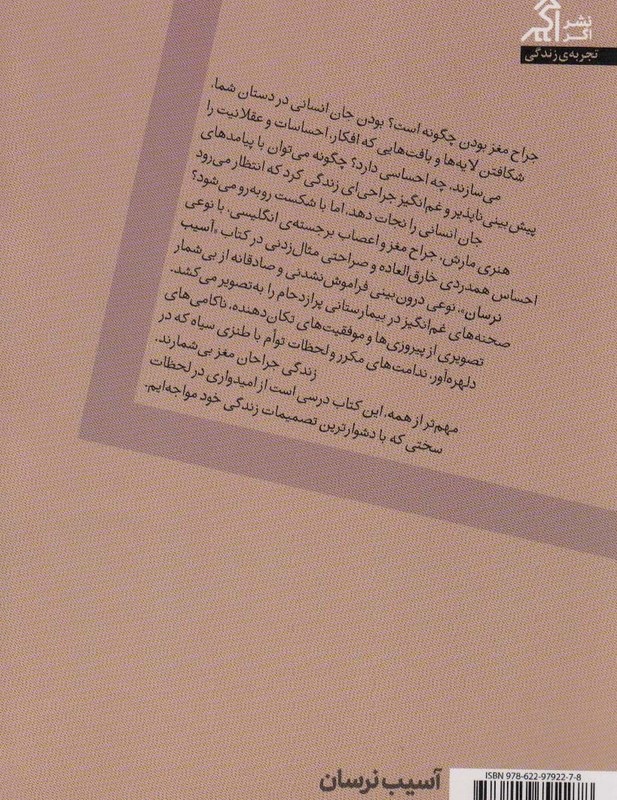 نشر
اگر
تجربه‌ی زندگی
جراح مغز بودن چگونه است؟ بودن جان انسانی در دستان شما،
شکافتن لایه‌ها و بافت‌هایی که افکار، احساسات و عقلانیت را
می‌سازند، چه احساسی دارد؟ چگونه می‌توان با پیامدهای
پیش‌بینی‌ناپذیر و غم‌انگیز جراحی‌ای زندگی کرد که انتظار می‌رود
جان انسانی را نجات دهد، اما با شکست روبه‌رو می‌شود؟
هنری مارش، جراح مغز و اعصاب برجسته‌ی انگلیسی، با نوعی
احساس همدردی خارق‌العاده و صراحتی مثال‌زدنی در کتاب «آسیب
نرسان»، نوعی درون‌بینی فراموش‌نشدنی و صادقانه از بی‌شمار
صحنه‌های غم‌انگیز در بیمارستانی پرازدحام را به‌تصویر می‌کشد.
تصویری از پیروزی‌ها و موفقیت‌های تکان‌دهنده، ناکامی‌های
دلهره‌آور، ندامت‌های مکرر و لحظات توأم با طنزی سیاه که در
زندگی جراحان مغز بی‌شمارند.
مهم‌تر از همه، این کتاب درسی است از امیدواری در لحظات
سختی که با دشوارترین تصمیمات زندگی خود مواجه‌ایم.
آسیب نرسان
ISBN 978-622-97922-7-8